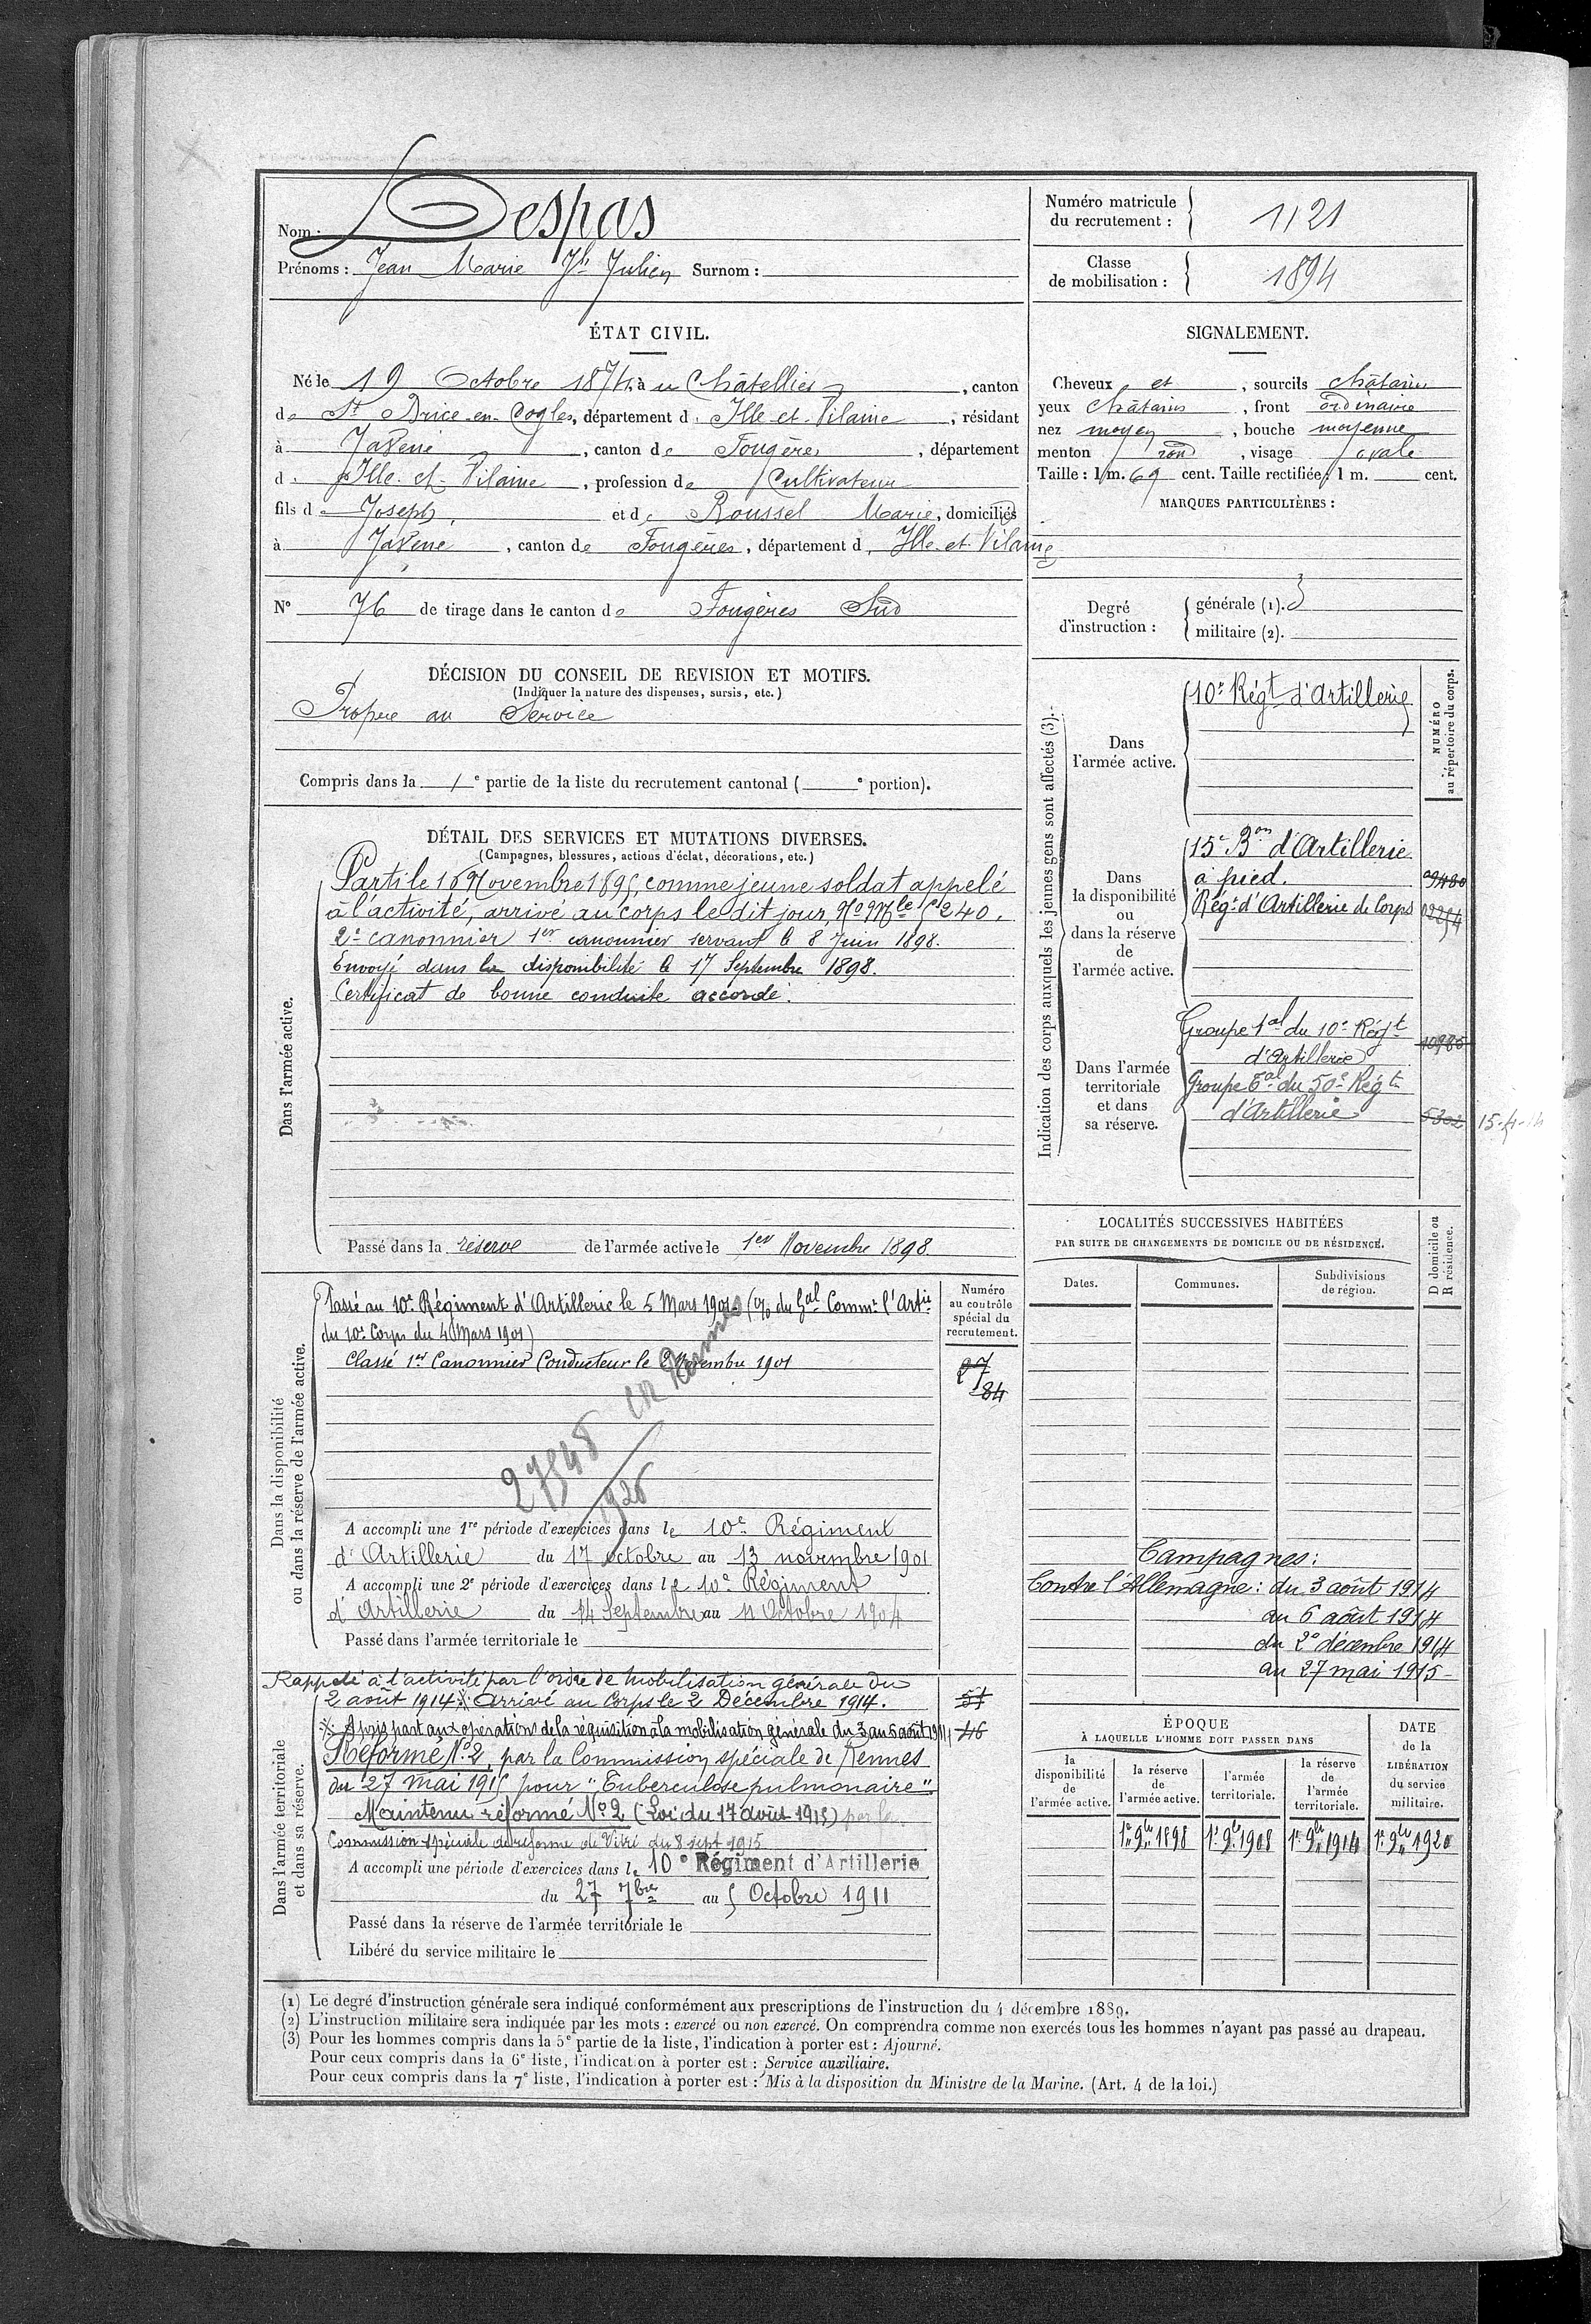 Nom : Despas
Prénoms : Jean Marie Jh Julien Surnom :
Numéro matricule
du recrutement : 1121
Classe
de mobilisation : 1894
ÉTAT CIVIL.
Né le 19 Octobre 1874, à u Châtellier, canton
de St Brice-en-Cogles, département d'Ille-et-Vilaine, résidant
à Javené, canton de Fougères, département
d'Ille-et-Vilaine, profession de Cultivateur
fils de Joseph et de Roussel Marie, domiciliés
à Javené, canton de Fougères, département d'Ille-et-Vilaine
N° 76 de tirage dans le canton de Fougères Sud
SIGNALEMENT.
Cheveux et, sourcils châtains
yeux châtains, front ordinaire
nez moyen, bouche moyenne
menton rond, visage ovale
Taille : 1 m. 69 cent. Taille rectifiée : 1 m. cent.
MARQUES PARTICULIÈRES :
Degré
d'instruction :
générale (1). 3
militaire (2).
DÉCISION DU CONSEIL DE REVISION ET MOTIFS.
(Indiquer la nature des dispenses, sursis, etc.)
Propre au Service
Compris dans la 1e partie de la liste du recrutement cantonal ( e portion).
DÉTAIL DES SERVICES ET MUTATIONS DIVERSES.
(Campagnes, blessures, actions d'éclat, décorations, etc.)
Dans l'armée active.
Parti le 16 Novembre 1895, comme jeune soldat appelé
à l'activité, arrivé au corps le dit jour, No Mle 5240.
2e canonnier 1er canonnier servant le 8 Juin 1898.
Envoyé dans la disponibilité le 17 Septembre 1898.
Certificat de bonne conduite accordé.
Passé dans la réserve de l'armée active le 1er Novembre 1898.
Indication des corps auxquels les jeunes gens sont affectés (3).
NUMÉRO
au répertoire du corps.
Dans
l'armée active.
10e Régt d'Artillerie
Dans
la disponibilité
ou
dans la réserve
de
l'armée active.
15e Bon d'Artillerie
à pied.
Régt d'Artillerie de Corps
Dans l'armée
territoriale
et dans
sa réserve.
Groupe tal du 10e Régt
d'Artillerie
Groupe tal du 50e Régt
d'Artillerie
5302
15-4-14
Dans la disponibilité
ou dans la réserve de l'armée active.
Numéro
au contrôle
spécial du
recrutement.
Passé au 10e Régiment d'Artillerie le 5 Mars 1901 (o/o du Gal Commt l'Artie
du 10e Corps du 4 Mars 1901)
Classé 1er Canonnier Conducteur le 2 Novembre 1901
27
84
27848 CR Rennes
1926
A accompli une 1re période d'exercices dans le 10e Régiment
d'Artillerie du 17 octobre au 13 novembre 1901
A accompli une 2e période d'exercices dans le 10e Régiment
d'Artillerie du 14 Septembre au 11 Octobre 1904
Passé dans l'armée territoriale le
LOCALITÉS SUCCESSIVES HABITÉES
PAR SUITE DE CHANGEMENTS DE DOMICILE OU DE RÉSIDENCE.
D domicile ou
R résidence.
Dates.
Communes.
Subdivisions
de région.
Campagnes :
Contre l'Allemagne : du 3 août 1914
au 6 août 1914
du 2 décembre 1914
au 27 mai 1915
Dans l'armée territoriale
et dans sa réserve.
Rappelé à l'activité par l'ordre de mobilisation générale du
2 août 1914 ※ Arrivé au Corps le 2 Décembre 1914.
※ A pris part aux opérations de la réquisition à la mobilisation générale du 3 au 6 août 1914
46
Réformé No 2, par la Commission spéciale de Rennes
du 27 mai 1915 pour "Tuberculose pulmonaire".
Maintenu réformé No 2 (Loi du 17 août 1915) par la
Commission spéciale de réforme de Vitré du 8 sept 1915
A accompli une période d'exercices dans le 10e Régiment d'Artillerie
du 27 7bre au 5 Octobre 1911
Passé dans la réserve de l'armée territoriale le
Libéré du service militaire le
ÉPOQUE
À LAQUELLE L'HOMME DOIT PASSER DANS
DATE
de la
LIBÉRATION
du service
militaire.
la
disponibilité
de
l'armée active.
la réserve
de
l'armée active.
l'armée
territoriale.
la réserve
de
l'armée
territoriale.
1er 9bre 1898
1er 9bre 1908
1er 9bre 1914
1er 9bre 1920
(1) Le degré d'instruction générale sera indiqué conformément aux prescriptions de l'instruction du 4 décembre 1889.
(2) L'instruction militaire sera indiquée par les mots : exercé ou non exercé. On comprendra comme non exercés tous les hommes n'ayant pas passé au drapeau.
(3) Pour les hommes compris dans la 5e partie de la liste, l'indication à porter est : Ajourné.
Pour ceux compris dans la 6e liste, l'indication à porter est : Service auxiliaire.
Pour ceux compris dans la 7e liste, l'indication à porter est : Mis à la disposition du Ministre de la Marine. (Art. 4 de la loi.)